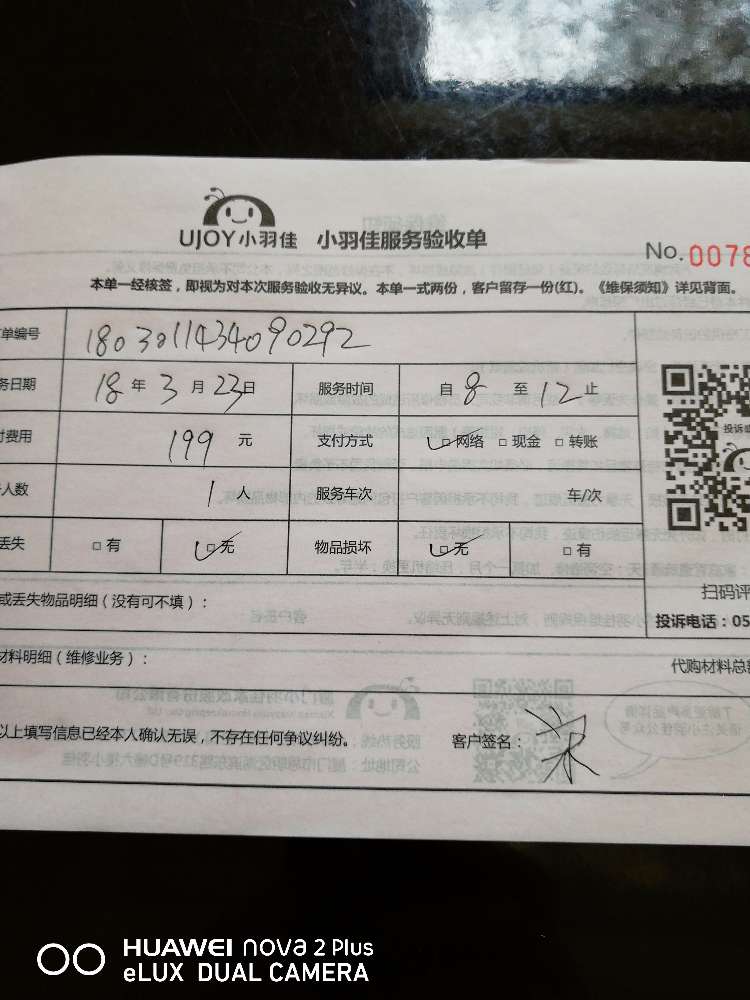 UJOY小羽佳 小羽佳服务验收单
No.0078
本单一经核签，即视为对本次服务验收无异议。本单一式两份，客户留存一份(红)。《维保须知》详见背面。
单编号 1803011434090292
务日期 18 年 3 月 23 日 服务时间 自 8 至 12 止
付费用 199 元 支付方式 网络 □ 现金 □ 转账
人数 1 人 服务车次 车/次
丢失 □ 有 □ 无 物品损坏 □ 无 □ 有
投诉
扫码评
或丢失物品明细（没有可不填）：
投诉电话：05
材料明细（维修业务）：
代购材料总
以上填写信息已经本人确认无误，不存在任何争议纠纷。 客户签名：
HUAWEI nova 2 Plus
eLUX DUAL CAMERA